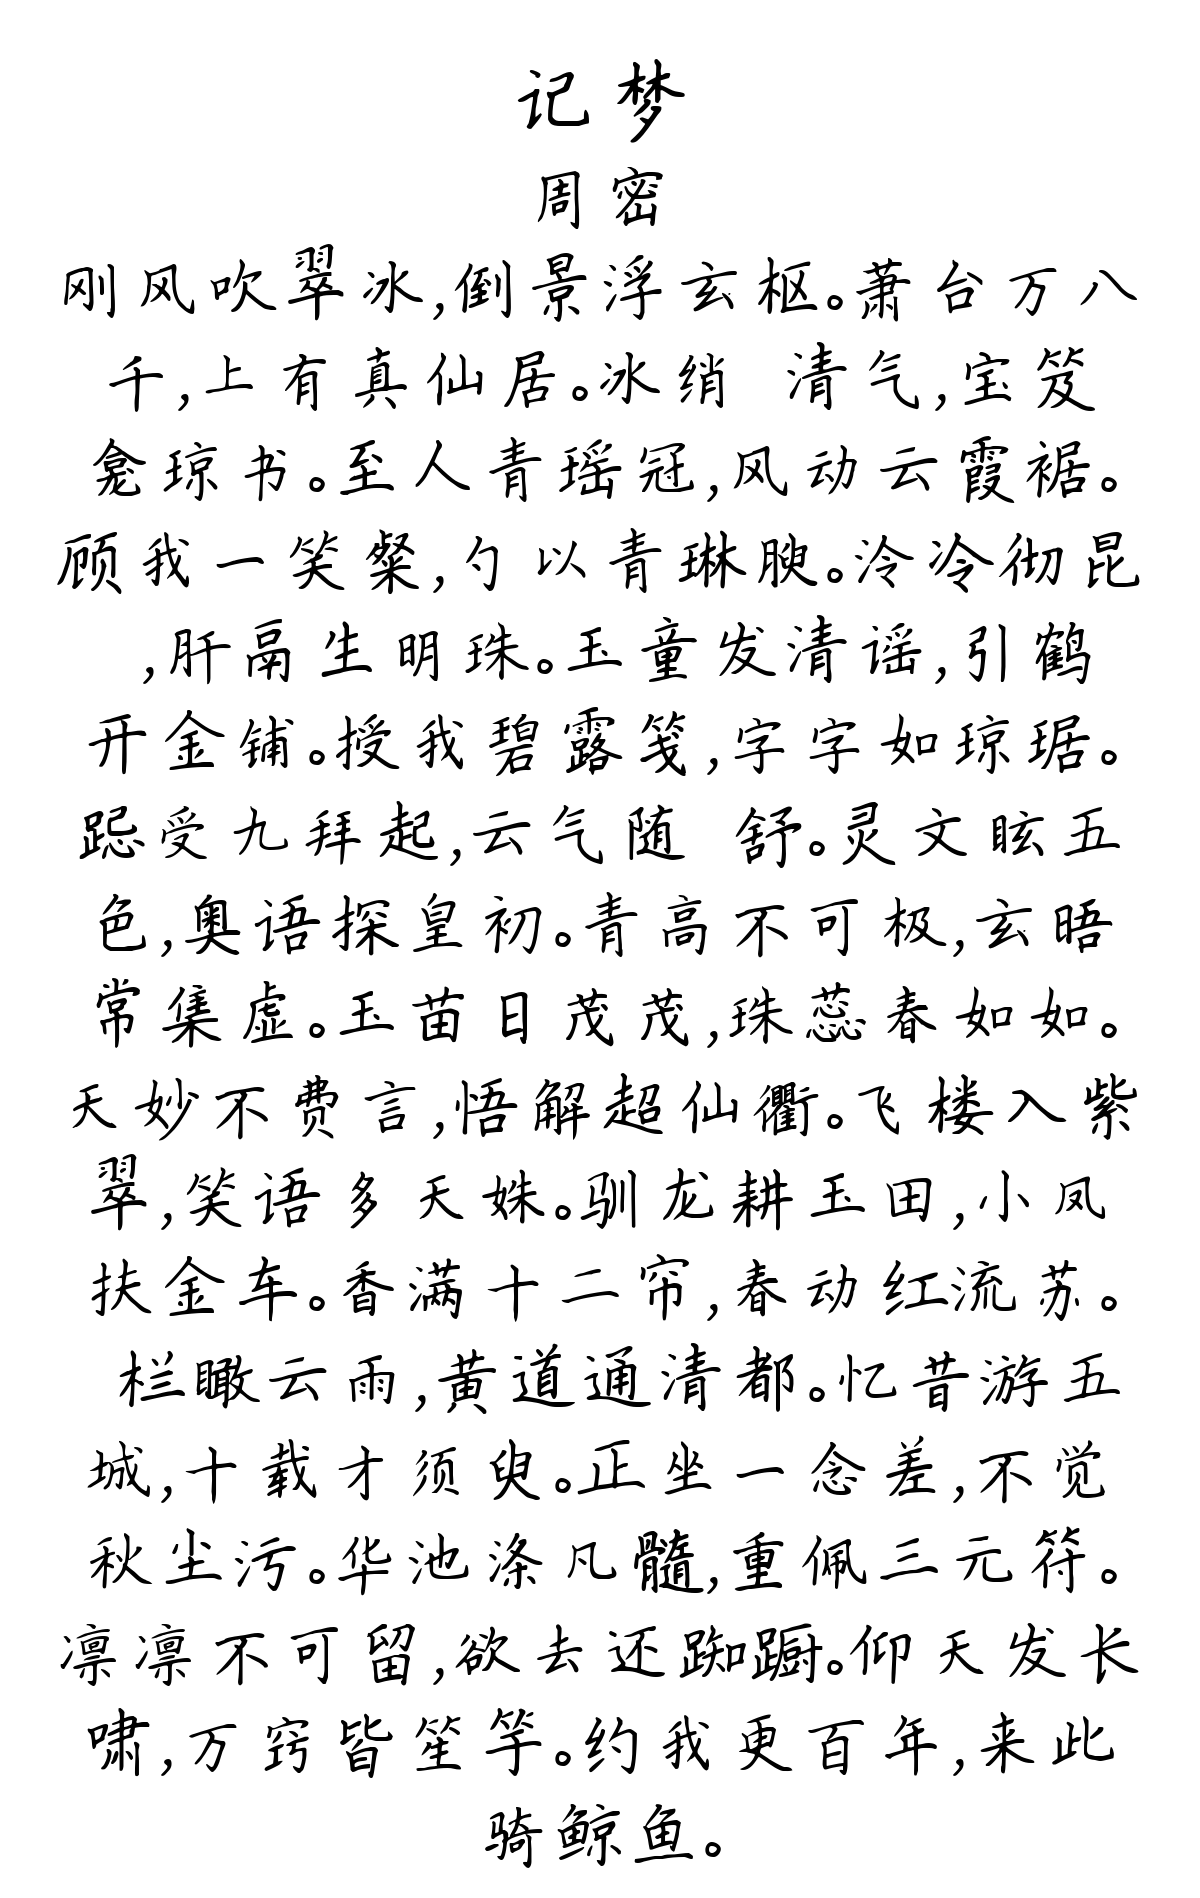 记梦
周密
刚风吹翠冰,倒景浮玄枢。萧台万八
千,上有真仙居。冰绡 清气,宝笈
龛琼书。至人青瑶冠,风动云霞裾。
顾我一笑粲,勺以青琳腴。泠冷彻昆
,肝鬲生明珠。玉童发清谣,引鹤
开金铺。授我碧露笺,字字如琼琚。
跽受九拜起,云气随 舒。灵文眩五
色,奥语探皇初。青高不可极,玄晤
常集虚。玉苗日茂茂,珠蕊春如如。
天妙不费言,悟解超仙衢。飞楼入紫
翠,笑语多天姝。驯龙耕玉田,小凤
扶金车。香满十二帘,春动红流苏。
栏瞰云雨,黄道通清都。忆昔游五
城,十载才须臾。正坐一念差,不觉
秋尘污。华池涤凡髓,重佩三元符。
凛凛不可留,欲去还踟蹰。仰天发长
啸,万窍皆笙竽。约我更百年,来此
骑鲸鱼。